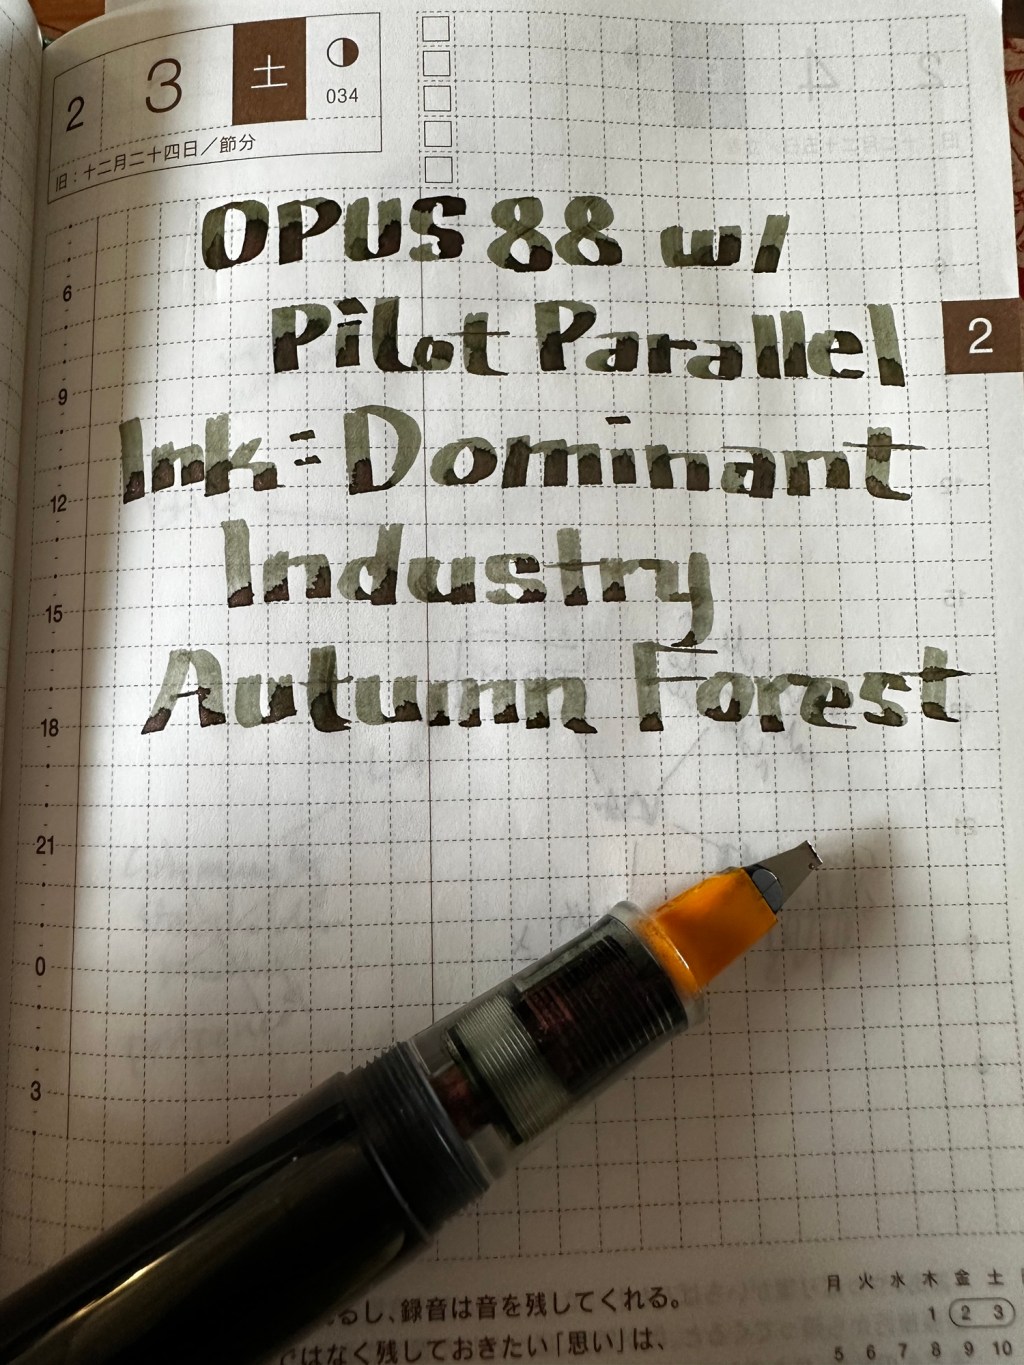 2 3 土
034
旧：十二月二十四日／節分
OPUS 88 w/
Pilot Parallel
Ink: Dominant
Industry
Autumn Forest
2
6
9
12
15
18
21
0
3
るし、録音は音を残してくれる。
はなく残しておきたい「思い」は、
月 火 水 木 金 土
1 2 3
5 6 7 8 9 10